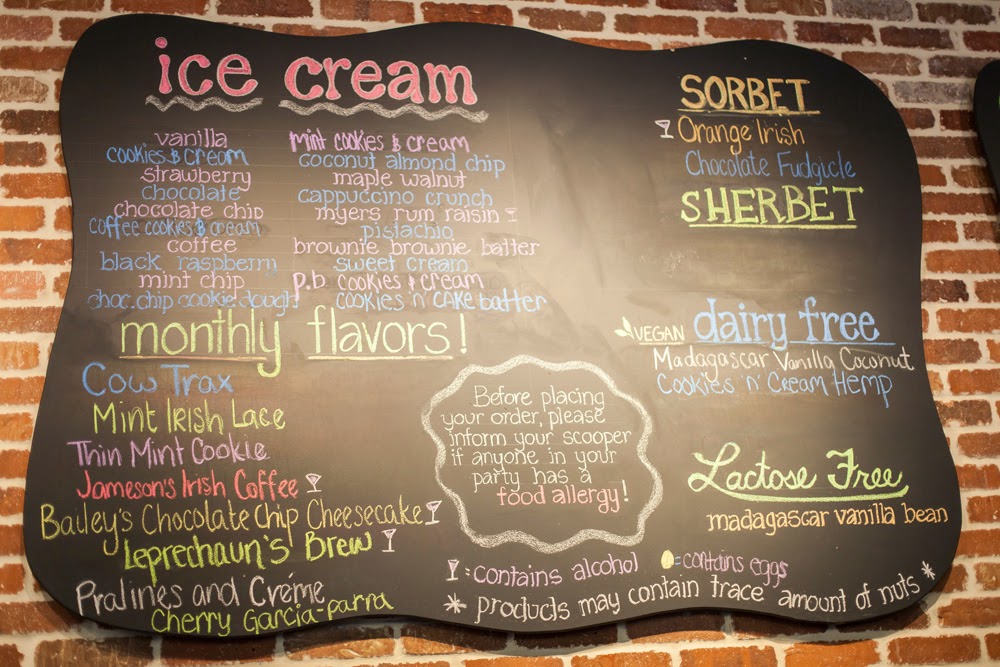 ice cream
vanilla
cookies & cream
strawberry
chocolate
chocolate chip
coffee cookies & cream
coffee
black raspberry
mint chip
choc.chip cookie dough
mint cookies & cream
coconut almond chip
maple walnut
cappuccino crunch
myers rum raisin
pistachio
brownie brownie batter
sweet cream
p.b. cookies & cream
cookies 'n' CAKE batter
monthly flavors!
Cow Trax
Mint Irish Lace
Thin Mint Cookie
Jameson's Irish Coffee
Bailey's Chocolate Chip Cheesecake
Leprechaun's Brew
Pralines and Créme
Cherry Garcia-parra
Before placing
your order, please
inform your scooper
if anyone in your
party has a
food allergy!
SORBET
Orange Irish
Chocolate Fudgicle
SHERBET
VEGAN dairy free
Madagascar Vanilla Coconut
Cookies 'n' Cream Hemp
Lactose Free
madagascar vanilla bean
=contains alcohol =contains eggs
* products may contain trace amount of nuts *